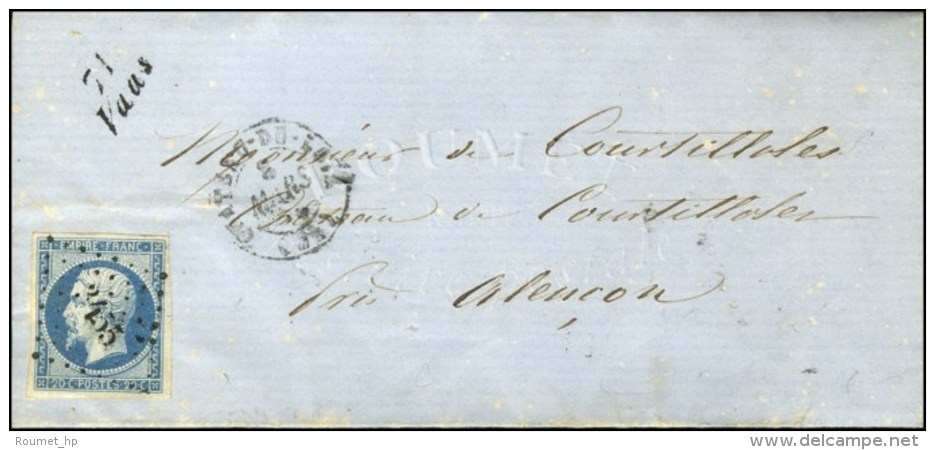 71
Vaas
CHATEAU-DU-LOIR
8
MARS
Monsieur de Courtilloles
Chateau de Courtilloles
près Alençon
EMPIRE FRANC.
20·C·POSTES·20·C
Roumet_hp
www.delcampe.net